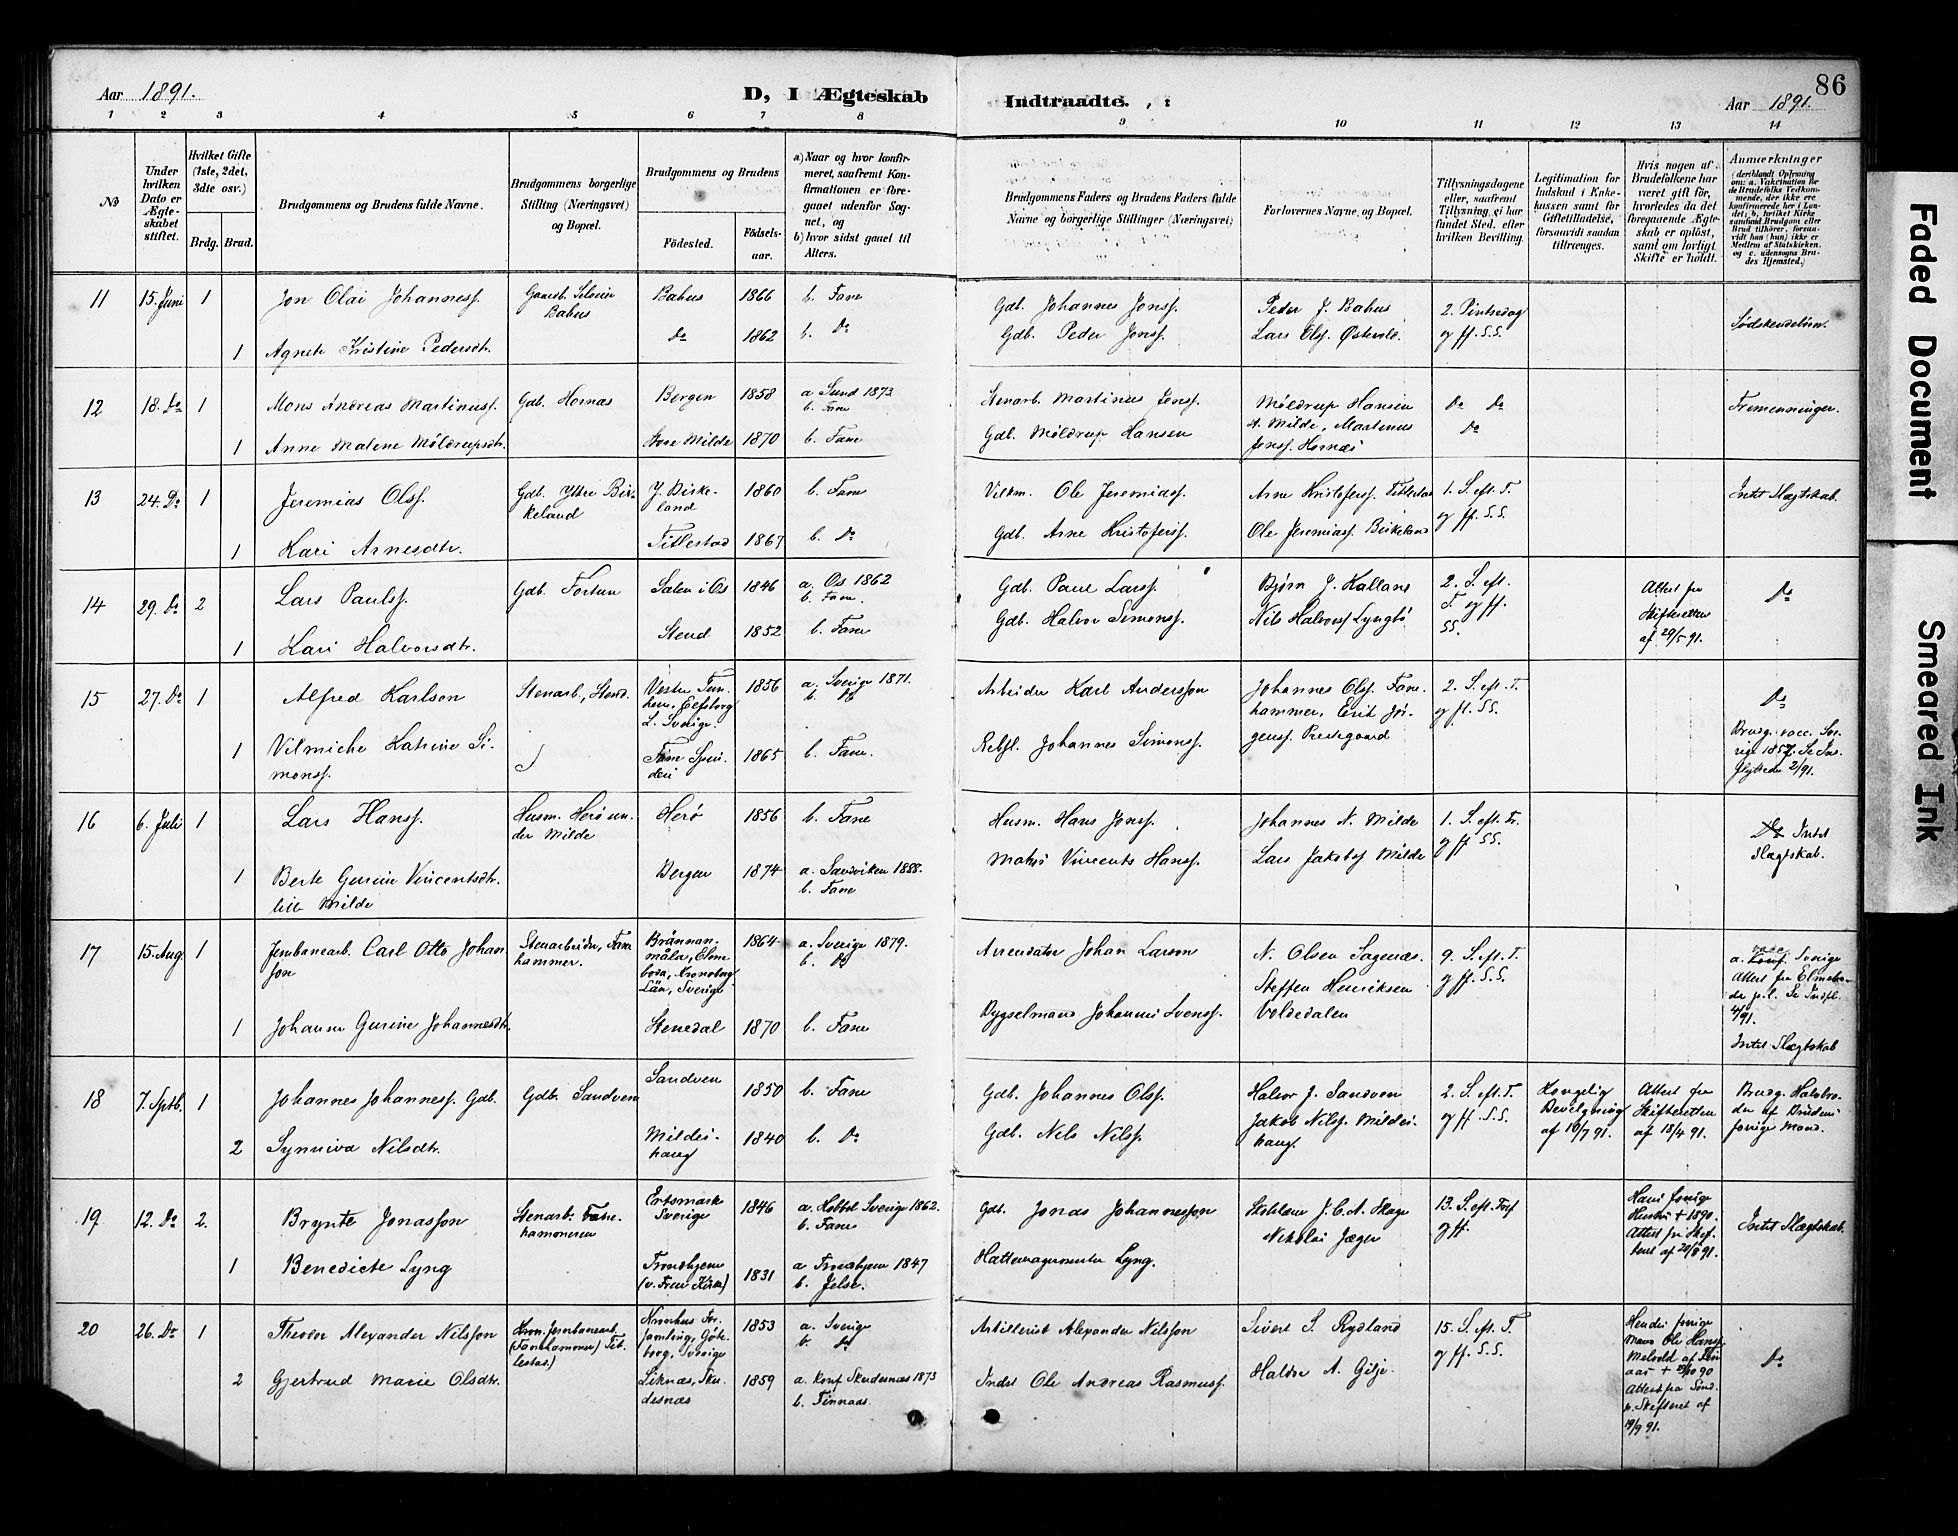 Aar 1891.
D, I Ægteskab
Indtraadte.
Aar 1891.
86
1 2 3 4 5 6 7 8 9 10 11 12 13 14
No
Under hvilken Dato er Ægteskabet stiftet.
Hvilket Gifte (1ste, 2det, 3die osv.)
Brdg. Brud.
Brudgommens og Brudens fulde Navne.
Brudgommens borgerlige Stilling (Næringsvei) og Bopæl.
Brudgommens og Brudens
Födested.
Födsels-aar.
a) Naar og hvor konfirmeret, saafremt Konfirmationen er foregaaet udenfor Sognet, og
b) hvor sidst gaaet til Alters.
Brudgommens Faders og Brudens Faders fulde Navne og borgerlige Stillinger (Næringsvei)
Forlovernes Navne, og Bopæl.
Tillysningsdagene eller, saafremt Tillysning ei har fundet Sted, efter hvilken Bevilling.
Legitimation for Indskud i Enkekassen samt for Giftetilladelse, forsaavidt saadan tiltrænges.
Hvis nogen af Brudefolkene har været gift för, hvorledes da det foregaaende Ægteskab er oplöst, samt om lovligt Skifte er holdt.
Anmærkninger (deriblandt Oplysning om: a. Vakcination for de Brudefolks Vedkommende, der ikke ere konfirmerede her i Landet; b. hvilket Kirkesamfund Brudgom eller Brud tilhörer, forsaavidt han (hun) ikke er Medlem af Statskirken, og c. udensogns Brudes Hjemsted.)
11 15. Juni 1 Jon Olai Johannesf. Gaardb. Bahus Bahus 1866 b. Fane Gdb. Johannes Jonsf. Peder J. Bahus 2. Pintsedag og ff. S.S. Södskendebörn.
1 Agnete Kristine Pedersdtr. Do 1862 b. Do Gdb. Peder Jonsf. Lars Olsf. Østvold.
12 18. Do 1 Mons Andreas Martinusf. Gdb. Hornæs Bergen 1858 a Sund 1873 b. Fane Stenarb. Martinus Jensf. Möldrup Hansen N. Milde, Martinus Jensf. Hornæs Do Do Do Fremenninger.
1 Anne Malene Möldrupsdtr. Store Milde 1870 b. Fane Gdb. Möldrup Hansen
13 24. Do 1 Jeremias Olsf. Gdb. Ytre Birkeland Y. Birkeland 1860 b. Fane Vilkm. Ole Jeremiasf. Arne Kristofersf. Titlestad 1. S. eft. T. og ff. S.S. Intet Slægtskab.
1 Kari Arnesdtr. Titlestad 1867 b. Do Gdb. Arne Kristofersf. Ole Jeremiasf. Birkeland
14 29. Do 2 Lars Paulsf. Gdb. Fortun Salen i Os 1846 a. Os 1862 b. Fane. Gdb. Paul Larsf. Bjørn J. Kalland 2. S. eft. T. og ff. SS. Attest fra Skifteretten af 29/5 91. Do
1 Kari Halvorsdtr. Stend 1852 b. Fane Gdb. Halvor Simonsf. Nils Halvorsf Lyngbö
15 27. Do 1 Alfred Karlson Stenarb., Stend. Elfsborg L. Sverige. 1856 a. Sverige 1871. b. Do Arbeider Karl Andersson Johannes Olsf. Fanehammer, Erik Jørgensf. Prestegaard 2. S. eft. T. og ff. SS. Do
1 Vilmiche Katrine Simonsf. Fane 1865 b. Fane. Rebsl. Johannes Simonsf. Brudg. vacc. Sverige 1857. Se Indflyttede 2/91.
16 6. Juli 1 Lars Hansf. Husm. Herö under Milde Herö 1856 b. Fane Husm. Hans Jonsf. Johannes N. Milde 1. S. eft. Tr. og ff SS. Do Intet Slægtskab.
1 Berte Gurine Vincentsdtr. lille Milde Bergen 1874 a. Sandviken 1888. b. Fane Matrs Vincents Hansf. Lars Jakobsf Milde
17 15. Aug. 1 Jernbanearb. Carl Otto Johanson Stenarbeider, Fanehammer. Brännanmåla, Elmeboda, Kronoberg Län, Sverige 1864 a. Sverige 1879. b. Do Arrendator Johan Larson N. Olsen Sagenæs. Steffen Henriksen Voldedalen 9. S. eft. T. og ff. S.S. a. vacc. Konf. Sverige Attest fra Elmeboda p.l. Se Indfl. 4/91. Intet Slægtskab
1 Johanne Gurine Johannesdtr. Stenedal 1870 b. Fane Dygselmand Johannes Svensf.
18 7. Sptb. 1 Johannes Johannesf. Gdb. Gdb. Sandven Sandven 1850 b. Fane Gdb. Johannes Olsf. Halvor J. Sandven 2. S. eft. T. og ff. S.S. Kongelig Bevilgning af 16/7 91. Attest fra Skifteretten af 18/4 91. Brudg. Halvbroder af Brudens forrige Mand.
2 Synniva Nilsdtr. Mildeshaug 1840 b. Do Gdb. Nils Nilsf. Jakob Nilsf. Mildeshaug.
19 12. Do 2. Brynte Jonasson Stenarb. Fanehammeren Ertsmark Sverige 1846 a. Holtet Sverige 1862. b. Fane Gdb. Jonas Johanneson J.C.A. Hage Nikolai Jæger 13. S. eft. Tref og ff. Hans forrige Hustru + 1890. Attest fra Skifteret af 20/8 91. Intet Slægtskab.
1 Benedicte Lyng Trondhjem (v. Frue Kirke) 1831 a Trondhjem 1847 b. Jelse. Hattemagermester Lyng.
20 26. Do 1 Theodor Alexander Nilsson Jernbanearb. (Fanehammer) Titlestad.) Göteborg, Sverige 1853 a. Sverige b. Do Artillerist Alexander Nilsson Sivert S. Rydland 15. S. eft. T. og ff. S.S. Hendes forrige Mand Ole Hansf. Melvold af Finaas + 29/10 90 Attest fra Sönd. p. Skifteret af 19/9 91. Do
2 Gjertrud Marie Olsdtr. Liknæs, Skudesnæs 1859 a. Konf. Skudesnæs 1873 b. Finnaas. Inderst Ole Andreas Rasmusf. Haldor A. Gilje.
Faded Document
Smeared Ink